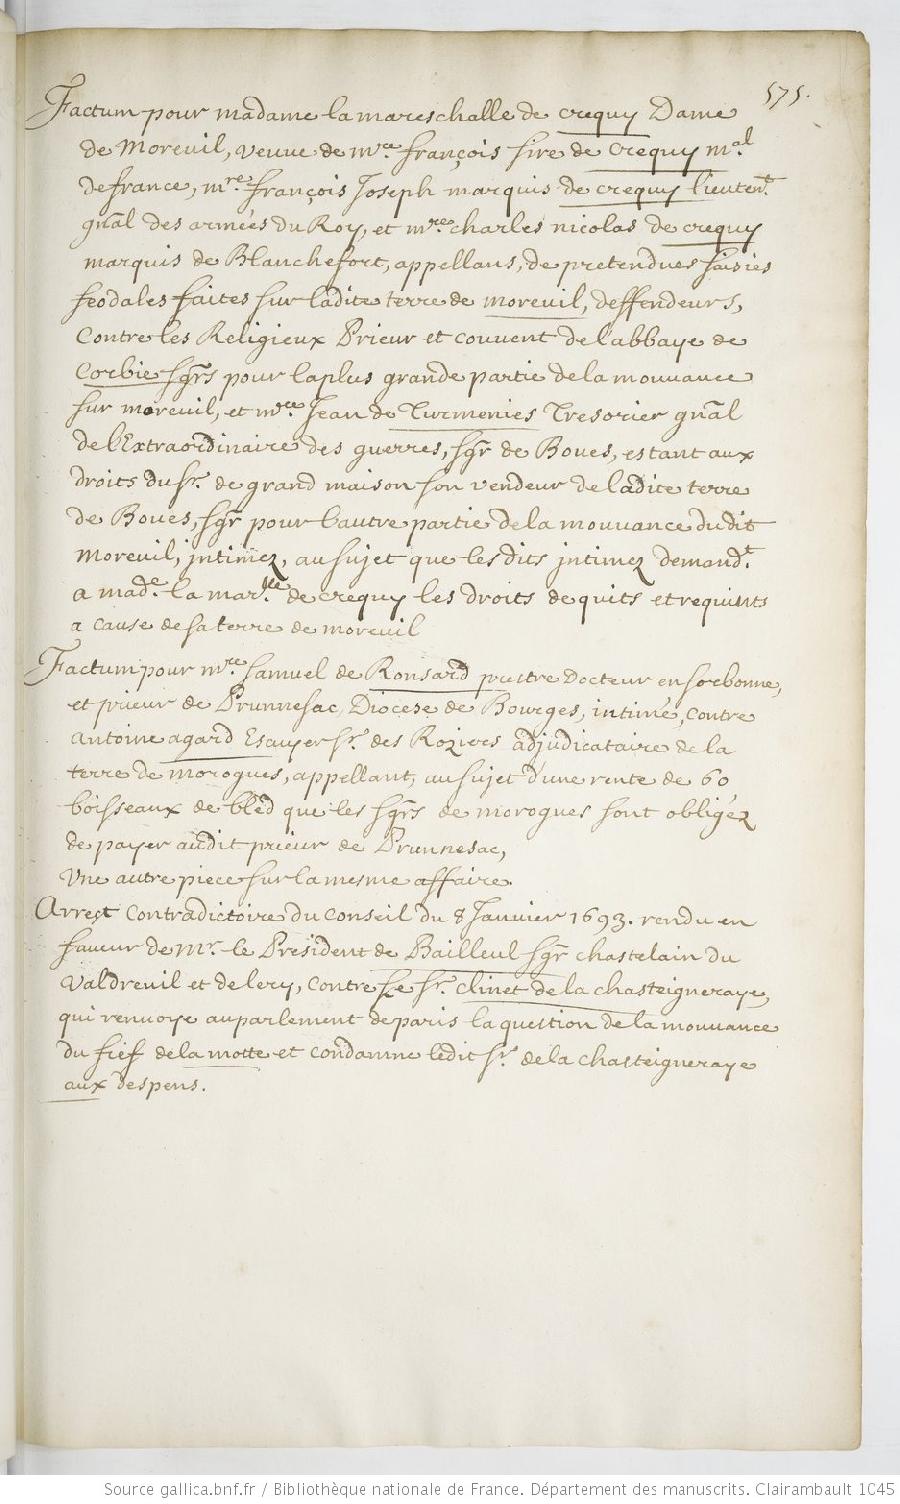 575.
Factum pour madame la mareschalle de crequy Dame
de Moreuil, veuve de mre françois sire de crequy mal
de france, mre françois Joseph marquis de crequy lieutent
gnãl des armées du Roy, et mre charles nicolas de crequy
marquis de Blanchefort, appellans, de pretendues saisies
feodales faites sur ladite terre de moreuil, deffendeurs,
Contre les Religieux Prieur et couvent de l'abbaye de
Corbie sgrs pour la plus grande partie de la mouvance
sur moreuil, et mre Jean de Turmenies Tresorier gnãl
de l'Extraordinaire des guerres, sgr de Boues, estant aux
droits du sr. de grand maison son vendeur de ladite terre
de Boues, sgr pour l'autre partie de la mouvance dudit
Moreuil, jntimez, au sujet que lesdits jntimez demandt
a made la marlle de crequy les droits de quits et requints
a cause de sa terre de moreuil
Factum pour mre Samuel de Ronsard prestre Docteur en sorbonne,
et prieur de Prunnesac, Diocese de Bourges, intimé, contre
Antoine agard Escuyer sr. des Roziers adjudicataire de la
terre de morogues, appellant, au sujet d'une rente de 60
boisseaux de bled que les sgrs de morogues sont obligez
de payer audit prieur de Prunnesac,
Une autre piece sur la mesme affaire.
Arrest Contradictoire du Conseil du 8 Janvier 1693. rendu en
faveur de mr. le President de Bailleul sgr chastelain du
Valdreuil et de lery, contre Le sr. Clinet de la chasteigneraye,
qui renvoye au parlement de paris la question de la mouvance
du fief de la motte et condamne ledit sr. de la chasteigneraye
aux despens.
Source gallica.bnf.fr / Bibliothèque nationale de France. Département des manuscrits. Clairambault 1045